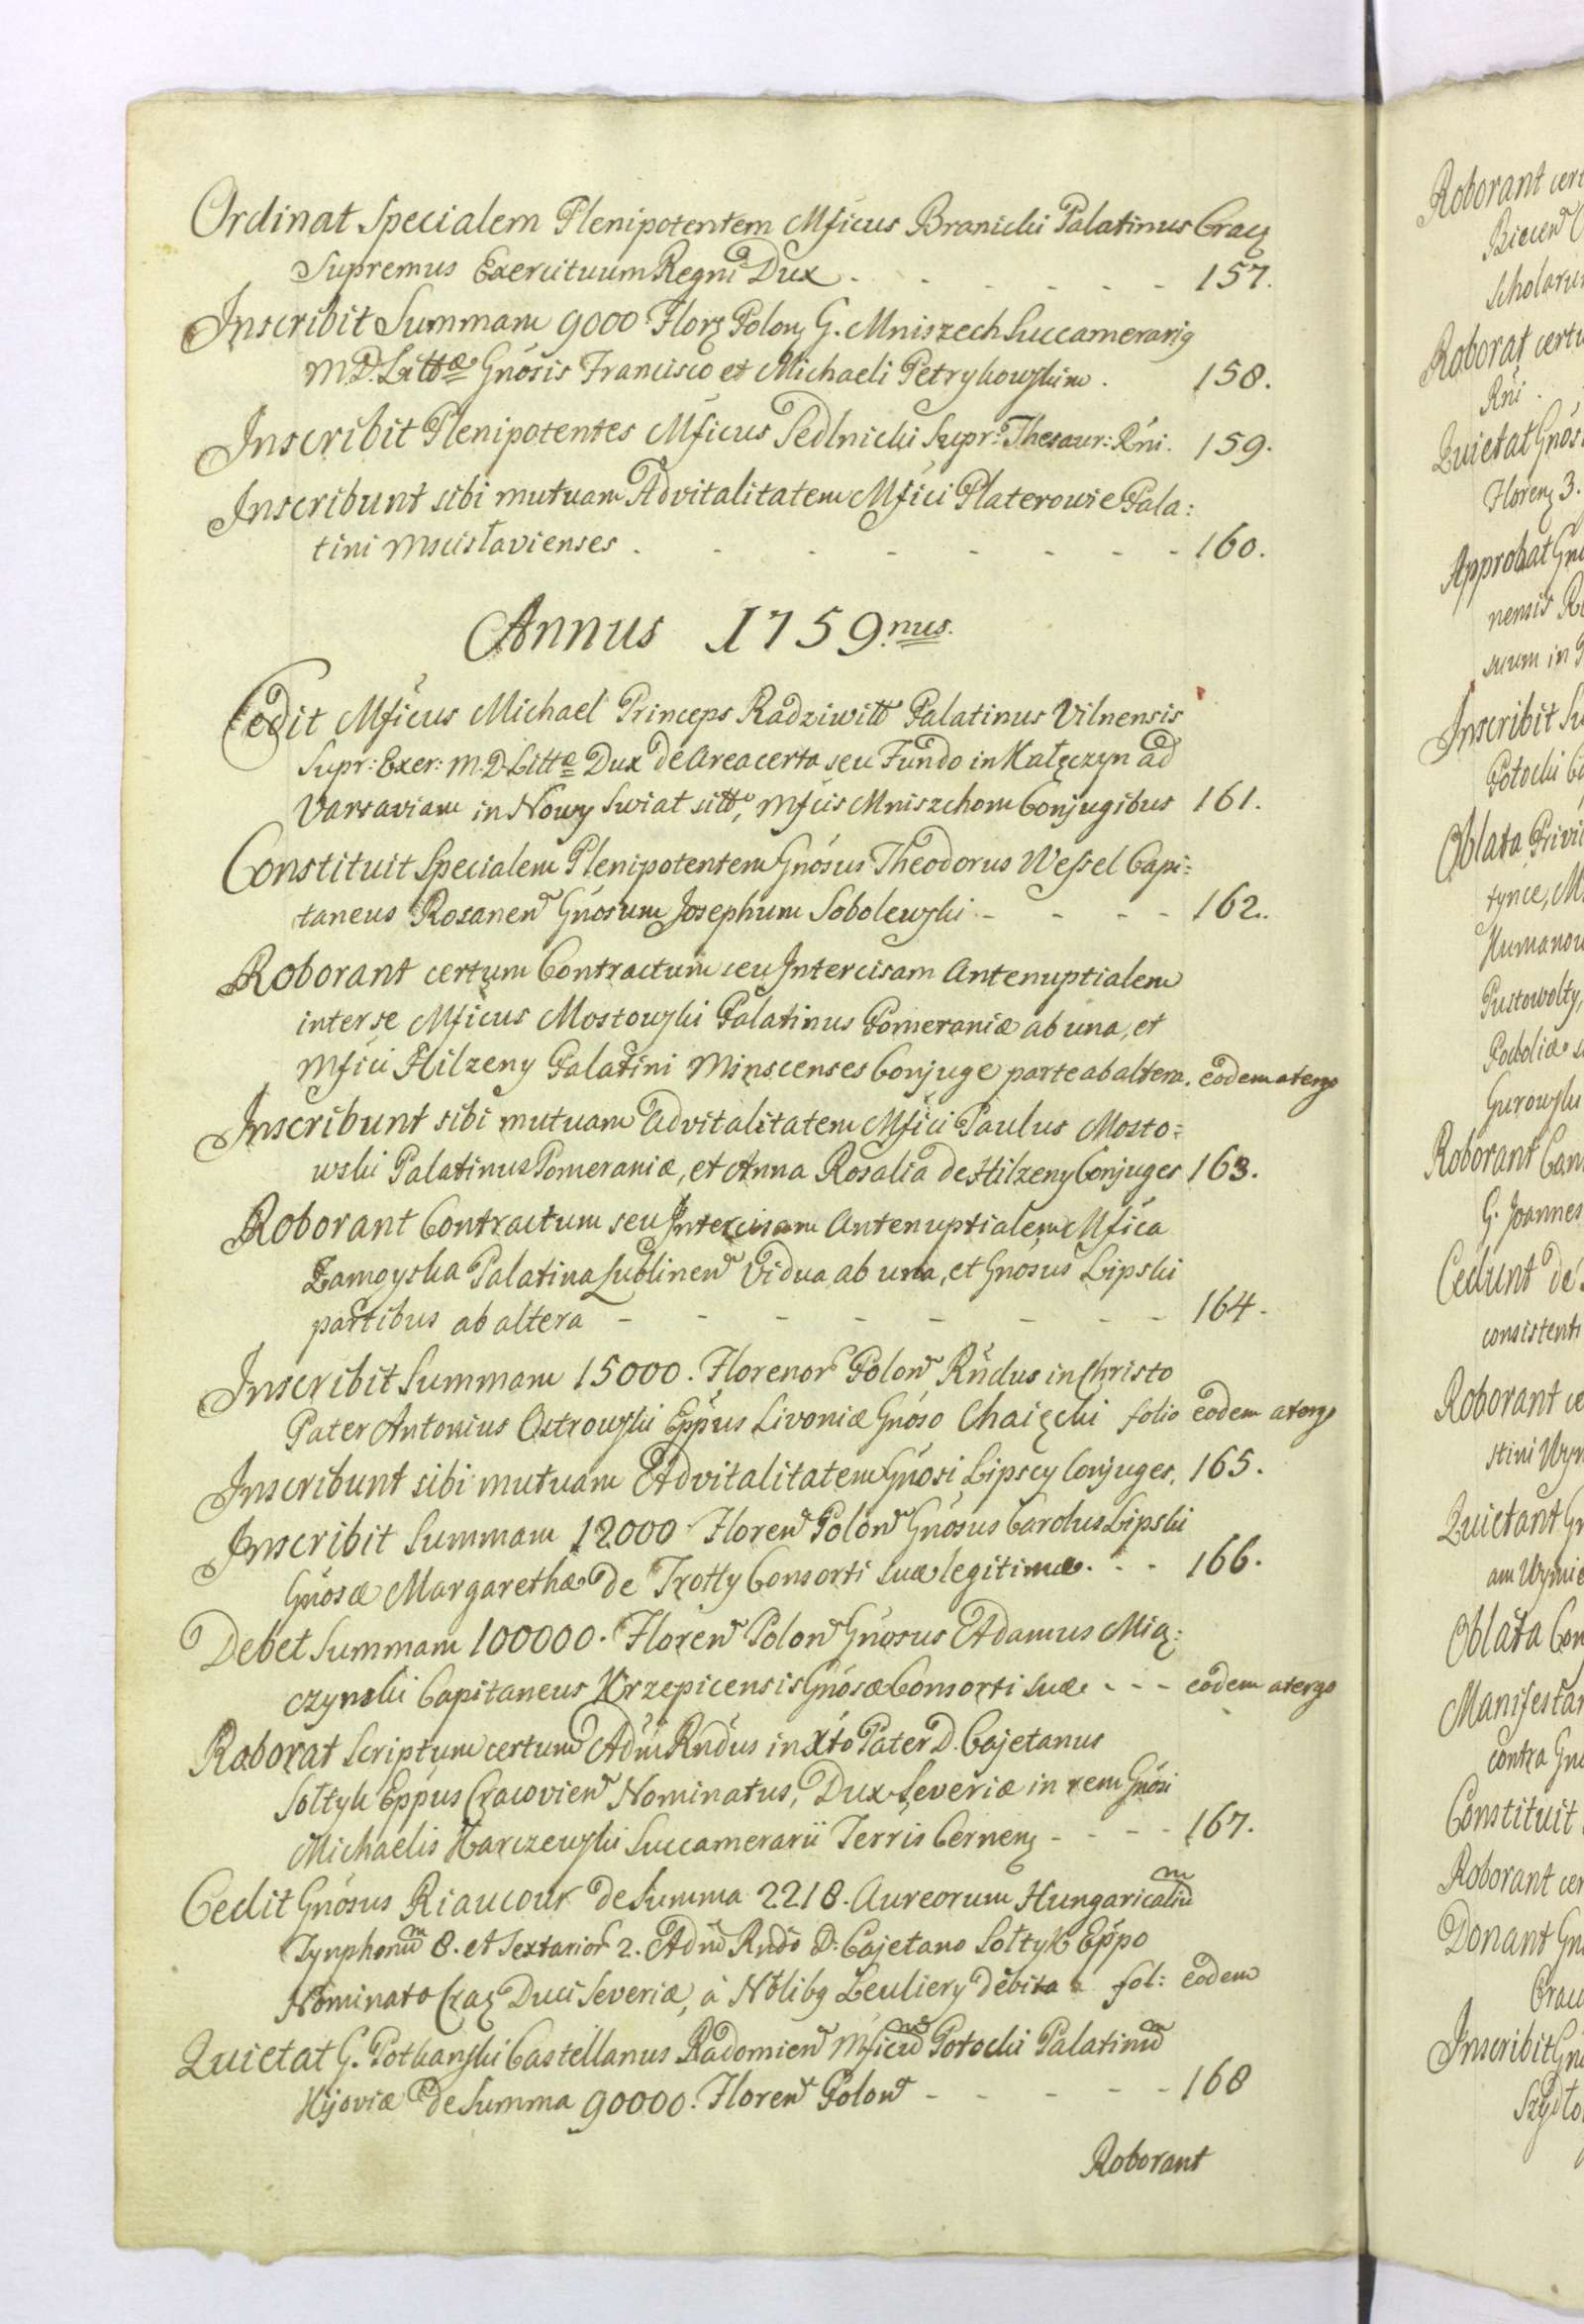 Ordinat Specialem Plenipotentem Mficus Branicki Palatinus Crac
Supremus Exercituum Regni Dux - - - - - 157.
Inscribit Summam 9000 Flor Polon G. Mniszech Succamerari9
M.D. Littæ Gnosis Francisco et Michaeli Petrykowskim. 158.
Inscribit Plenipotentes Mficus Sedlnicki Supr: Thesaur: Rni. 159.
Inscribunt sibi mutuam Advitalitatem Mfici Platerowie Pala:
tini Mscislavienses - - - - - - 160.
Annus 1759.nus.
Cedit Mficus Michael Princeps Radziwiłł Palatinus Vilnensis
Supr: Exer: M.D. Littæ Dux de Area certa seu Fundo in Kałęczyn ad
Varsaviam in Nowy Swiat sitto, Mfcis Mniszchom Conjugibus 161.
Constituit Specialem Plenipotentem Gnosus Theodorus Wessel Capi:
taneus Rosanen Gnosum Josephum Sobolewski - - - - 162.
Roborant certum Contractum seu Intercisam Antenuptialem
inter se Mficus Mostowski Palatinus Pomeraniæ ab una, et
Mfici Hilzeny Palatini Minscenses Conjuge parte ab altera. eodem atergo
Inscribunt sibi mutuam Advitalitatem Mfici Paulus Mosto:
wski Palatinus Pomeraniæ, et Anna Rosalia de Hilzeny Conjuges 163.
Roborant Contractum seu Intercisam Antenuptialem Mfica
Zamoyska Palatina Lublinen Vidua ab una, et Gnosus Lipski
partibus ab altera - - - - - - - 164.
Inscribit Summam 15000. Florenor Polon Rndus in Christo
Pater Antonius Ostrowski Eppus Livoniæ Gnoso Chaięcki folio eodem atergo
Inscribunt sibi mutuam Advitalitatem Gnosi Lipscy Conjuges. 165.
Inscribit Summam 12000 Floren Polon Gnosus Carolus Lipski
Gnosæ Margarethæ de Trotty Consorti suæ legitimæ. - - 166.
Debet Summam 100000. Floren Polon Gnosus Adamus Mią:
czynski Capitaneus Krzepicensis Gnosæ Consorti suæ - - - eodem atergo
Roborat Scriptum certum Adm Rndus in Xto Pater D. Cajetanus
Sołtyk Eppus Cracovien Nominatus, Dux Severiæ in rem Gnosi
Michaelis Karczewski Succamerarii Terris Cernen - - - - 167.
Cedit Gnosus Riaucour de Summa 2218. Aureorum Hungaricaliu
Tynphoru 8. et Sextarior 2. Adm Rndo D. Cajetano Sołtyk Eppo
Nominato Crac Duci Severiæ, à Nblib9 Leuliery debita - fol: eodem
Quietat G. Potkanski Castellanus Radomien Mficu Potocki Palatinu
Kijoviæ de Summa 90000. Floren Polon - - - - - 168
Roborant
Roborant
Biecen
Scholaru
Roborat certu
Rni.
Quietat Gnos
Floren 3.
Approbat
nensis
suum in
Inscribit
Potocki
Oblata Privi
tynce, M
Humanow
Pustowolty,
Podoliæ
Gurowski
Roborant
G. Joannes
Cedunt de
consistenti
Roborant
stini
Quietant
am
Oblata Con
Manifestar
contra
Constituit
Roborant cer
Donant
Crac
Inscribit
Szydło